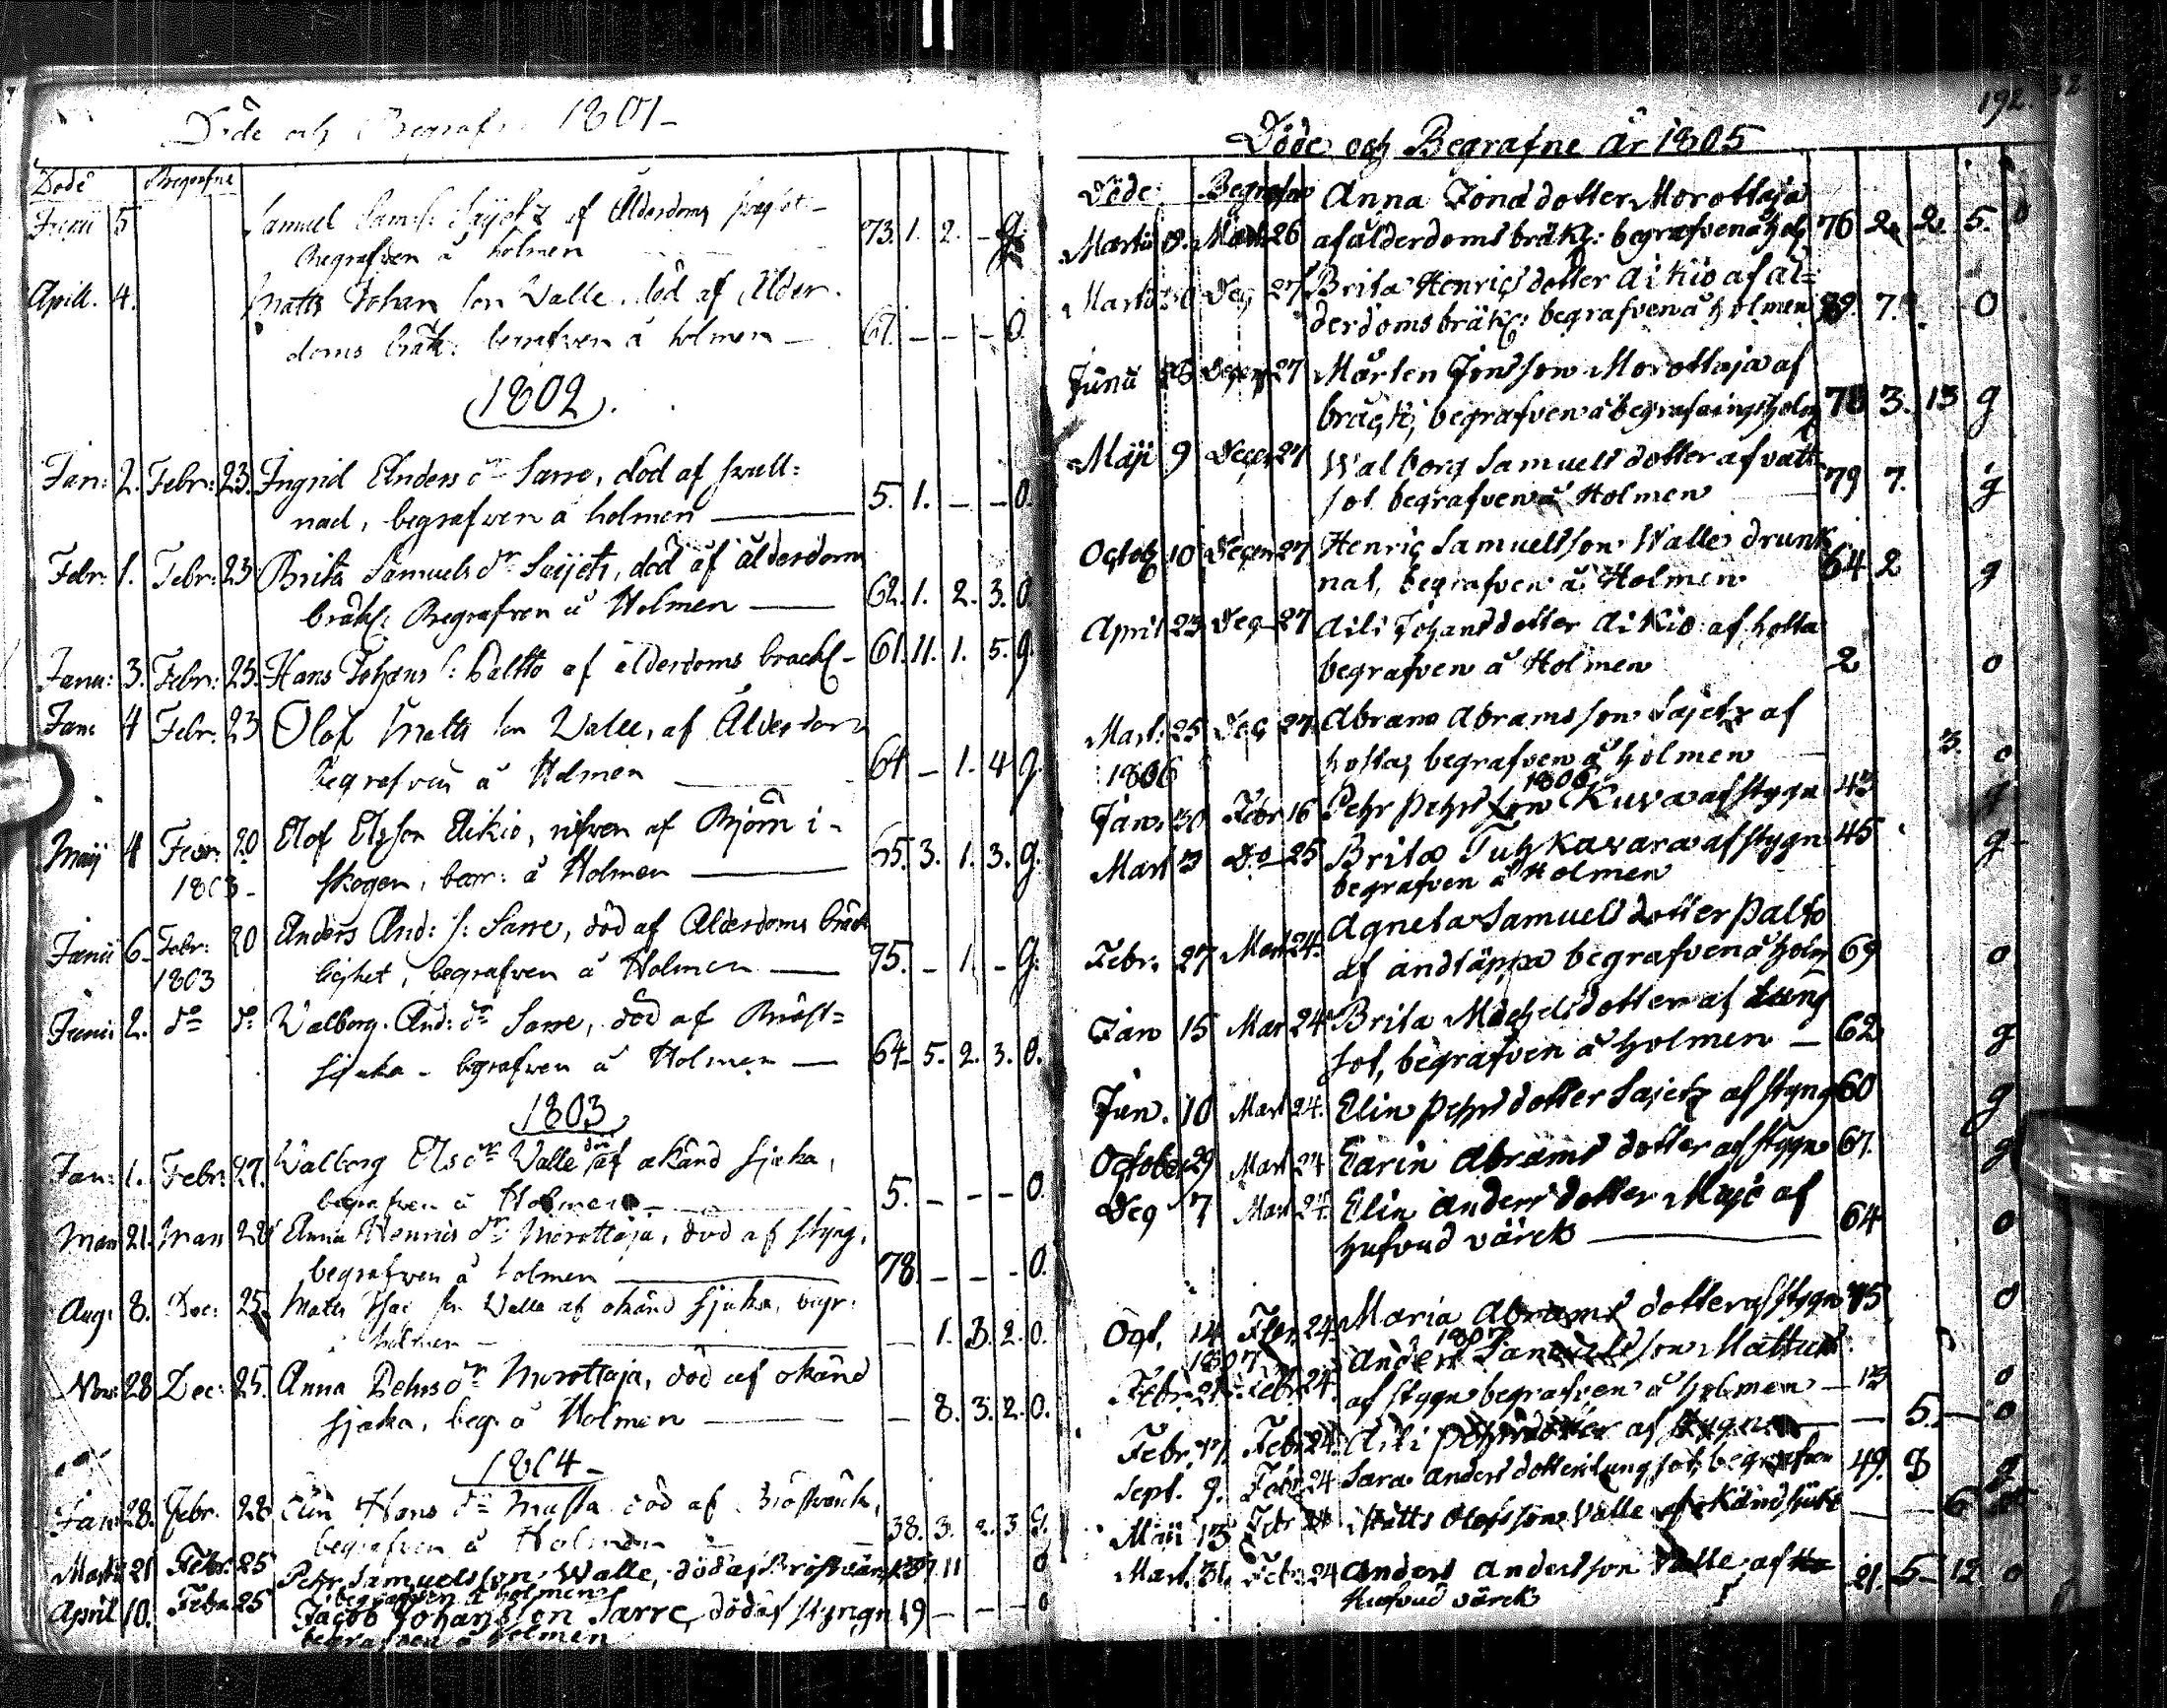 Döde och Begrafne 1801
Döde Begrafne
Junii 5 Samuel Sam: s: Saijetz af Ålderdoms
Begrafven å holmen 73. 1. 2. - g
Aprill. 4. Matts Johan son Valle. död af Ålder-
doms bräk: begrafven å holmen 67. - - - 0.
1802.
Jan: 2. Febr: 23. Ingrid Anders dr Sarre, död af svull:
nad, begrafven å holmen 5. 1. - - 0.
Febr: 1. Febr: 23 Brita Samuels dr Saijetz, död af ålderdoms
bräkl: Begrafven å Holmen 62. 1. 2. 3. 0.
Janu: 3. Febr: 23. Hans Johans s: Paltto af ålderdoms brackl- 61. 11. 1. 5. g.
Janu 4 Febr. 23 Olof Matts son Valle, af Ålderdom
begrafven å Holmen 64 - 1. 4 g.
Maij 4 Febr: 20 Elof Elsson Aikio, rifven af Björn i-
1803- skogen, begr: å Holmen 65. 3. 1. 3. g.
Junii 6- Febr: 20 Anders And: s: Sarre, död af Alderdoms bräck
1803 lighet, begrafven å Holmen 75. - 1. - g.
Junii 2. do do Valborg And: dr Sarre, död af Bröst=
sjuka - begrafven å Holmen 64- 5. 2. 3. 0.
1803
Jan: 1. Febr: 27. Walborg Els dr Valle död af okänd sjuka,
begrafven å Holmen 5. - - - 0.
Mars 21. Mars 28 Anna Henrics dr Morottaja, död af styng,
begrafven å holmen 78. - - - 0.
Aug: 8. Dec: 25. Matts Isac son Valle af okänd sjuka, begr:
å holmen - - 1. 3. 2. 0.
Nov: 28 Dec: 25. Anna Pehrs dr Morottaja, död af okänd
sjuka, beg. å Holmen - 8. 3. 2. 0.
1804-
Jan: 28. Febr. 28 Elin Hans dr Musta död af Bröstvärk,
begrafven å Holmen 38. 3. 2. 3 g.
Martii 21 Febr. 25 Pehr Samuelsson Walle, död af Bröstvärk 11 0
begrafven å holmen
April 10. Febr 25 Jacob Johansson Sarre, död af styngn 19 - - - 0
begrafven å Holmen
192.
Döde och Begrafne År 1805
Döde Begrafne
Anna Jons dotter Morottaja
Martii 9. Mart 26 af ålderdoms bräkl: begrafven å hol 76 2. 2. 5. 0
Martii 30 Dec 27 Brita Henrics dotter Aikio af ål=
derdoms bräkl: begrafven å holmen 89. 7. 0
Junii 23 Decem 27 Mårten Jons son Morottaja af
bräckl; begrafven å begrafningsholm 78 3. 13 g
Maji 9 Decem 27 Walborg Samuels dotter af vatt
sot begrafven å Holmen 79 7. g
Octob 10 Decem 27 Henric Samuels son Walle drunk
nat, begrafven å Holmen 64 2 g
April 23 Dec 27 Aili Johans dotter Aikio af hosta
begrafven å Holmen 2 0
Mart: 25 Dec 27 Abram Abrams son Sajetz af
hosta, begrafven å holmen 3. 0
1806 1806
Jan. 30 Febr 16 Pehr Pehrs son Kuva af stygn 43 g
Mart 3 Do 25 Brita Tuhkavara af stygn 45 g-
begrafven å Holmen
Febr. 27 Mart 24. Agneta Samuels dotter Palto
af andtäppa begrafven å holm 69 0
Jan 15 Mar 24 Brita Michels dotter af lung
sot, begrafven å holmen - 62 g
Jun. 10 Mart 24. Elin Pehrs dotter Sajetz af styng 60 g
October 29 Mart 24 Carin Abrams dotter af stygn 67. g
Dec 7 Mart 24. Elin Anders dotter Majo af
hufvud värck 64 0
Oct. 14 Febr. 24. Maria Abrams dotter af stygn 75 0
1807 1807
Febr. 21 Febr. 24. Anders Samuels son Mattus
af stygn begrafven å holmen - 0
Febr. 17. Febr 24. Aili Pehrs dotter af stygn - 5. - 0
Sept. 9. Febr 24 Sara Anders dotter lungsot, begrafven 49. 8 g
Maii 13 Febr 24 Matts Olofs son Valle af okänd sjuk - - 6
Mart. 31. Febr. 24 Anders Anders son Valle af
Hufvud värck 21. 5 12 0